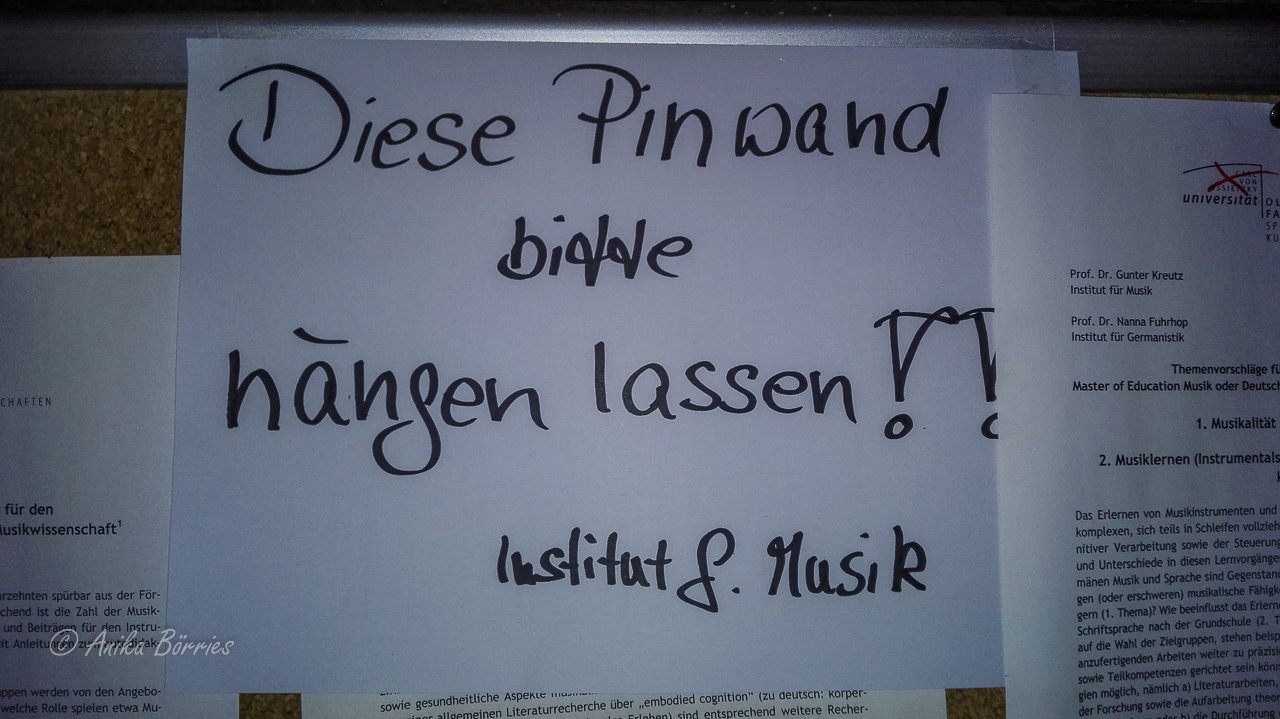 Diese Pinwand
bitte
hängen lassen!!
Institut f. Musik
CHAFTEN
für den
usikwissenschaft¹
rzehnten spürbar aus der För-
chend ist die Zahl der Musik-
und Beiträgen für den Instru-
it Anleitungen zur
© Anika Börries
ppen werden von den Angebo-
welche Rolle spielen etwa Mu-
sowie gesundheitliche Aspekte
einer allgemeinen Literaturrecherche über „embodied cognition“ (zu deutsch: körper-
Erleben) sind entsprechend weitere Recher-
CARL
VON
OSSIETZKY
universität
Prof. Dr. Gunter Kreutz
Institut für Musik
Prof. Dr. Nanna Fuhrhop
Institut für Germanistik
Themenvorschläge fü
Master of Education Musik oder Deutsc
1. Musikalität
2. Musiklernen (Instrumentals
Das Erlernen von Musikinstrumenten und
komplexen, sich teils in Schleifen vollzieh
nitiver Verarbeitung sowie der Steuerun
und Unterschiede in diesen Lernvorgänge
mänen Musik und Sprache sind Gegenstan
gen (oder erschweren) musikalische Fähigk
gern (1. Thema)? Wie beeinflusst das Erlern
Schriftsprache nach der Grundschule (2. T
auf die Wahl der Zielgruppen, stehen beisp
anzufertigenden Arbeiten weiter zu präzisi
sowie Teilkompetenzen gerichtet sein könn
gien möglich, nämlich a) Literaturarbeiten,
der Forschung sowie die Aufarbeitung theo
die Durchführung